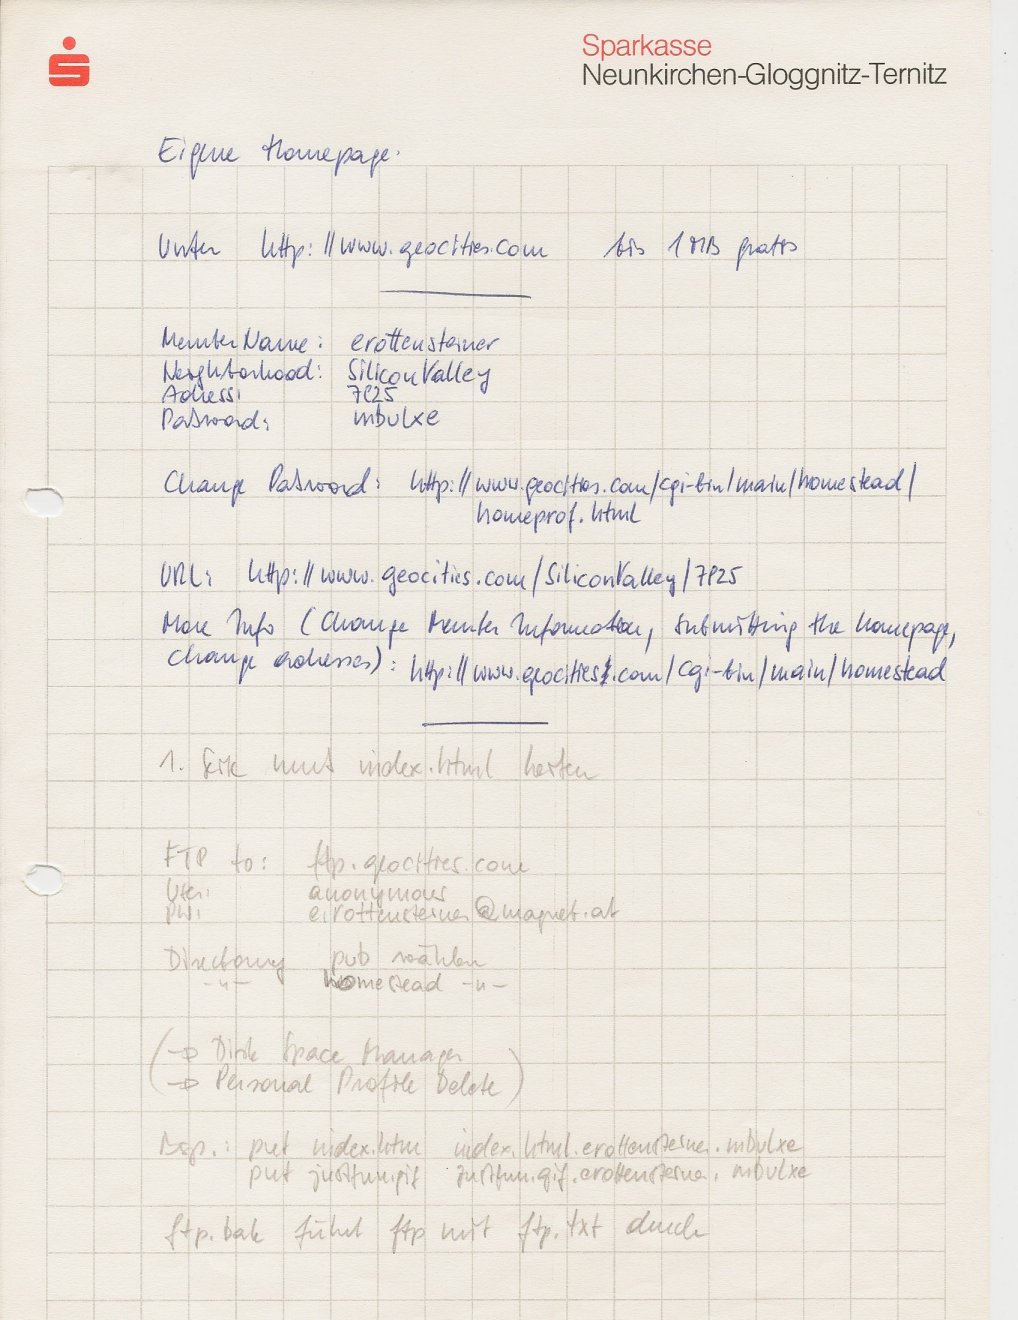 Sparkasse
Neunkirchen-Gloggnitz-Ternitz
Eigene Homepage.
Unter http://www.geocities.com bis 1 MB gratis
MemberName: erottensteiner
Neighborhood: SiliconValley
Adress: 7825
Password: mbulxe
Change Password: http://www.geocities.com/cgi-bin/main/homestead/
homeprof.html
URL: http://www.geocities.com/SiliconValley/7825
More Info (Change Member Information, submitting the homepage,
change adresses): http://www.geocities.com/cgi-bin/main/homestead
1. Seite muß index.html heißen
FTP to: ftp.geocities.com
User: anonymous
PW: erottensteiner@magnet.at
Directory pub wählen
-"- homestead -"-
(→ Disk Space Manager
→ Personal Profile Delete)
Bsp.: put index.htm index.html.erottensteiner.mbulxe
put justfun.gif justfun.gif.erottensteiner.mbulxe
ftp.bat führt ftp mit ftp.txt durch